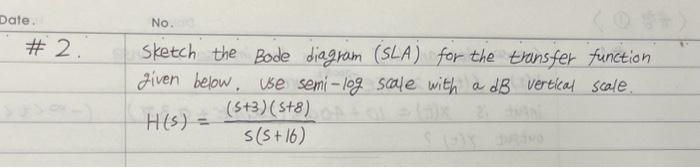 Date.
No.
# 2.
Sketch the Bode diagram (SLA) for the transfer function
given below. Use semi-log scale with a dB vertical scale.
H(s) = (s+3)(s+8) / s(s+16)